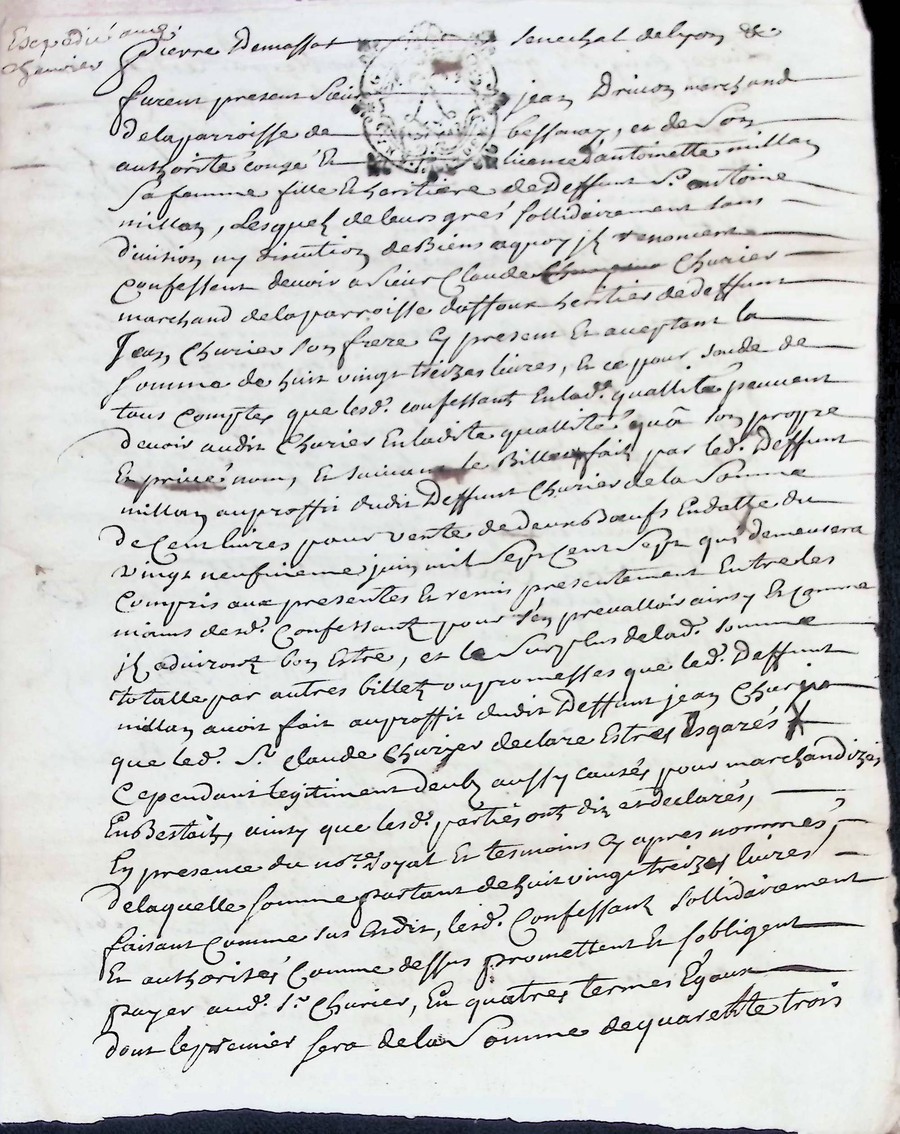 Expedié aud.
Churier
Pierre Demassot senechal de lyon &c
furent present sieur jean Drivon marchand
de la parroisse de bessenay, et de son
authorité congé et licence d'antoinette millan
sa femme fille et haritiere de deffunt Sr. antoine
millan, lesquelz de leurs grés sollidairement sans
division ny discution de Biens aquoy jlz renoncent
confessent devoir a sieur Claude Churier
marchand de la parroisse daffoux heritier de deffunt
Jean Churier son frere cy present et aceptant la
somme de huit vingt treizes livres, et ce pour soude de
tous comptes que lesd. confessantz en lad. quallité peuvent
devoir audit Churier en ladite quallité qu'a son propre
et privé nom, et suivant le Billet fait par led. deffunt
millan auproffit dudit deffunt Churier de la somme
de Cent livres pour vente de deux Bœufs en datte du
vingt neufvieme juin mil sept cent sept qui demeurera
compris aux presentes et remis presentement entre les
mains desd. Confessantz pour s'en prevalloir ainsy et comme
jlz aduiront bon estre, et le surplus de lad. somme
totalle par autres billetz ou promesses que led. deffunt
millan avoit fait auproffit dudit deffunt jean Churier
que led. Sr. Claude Churier declare estres esgarés
Cependant legitiment deubz aussy causés pour marchandizes
en Bestail, ainsy que lesd. partiés ont dit et declarés,
En presence du nore. royal et tesmoins cy apres nommés,
de laquelle somme partant de huit vingt treizes livres
faisant comme sus est dit, lesd. Confessantz sollidairement
et authorisés comme dessus promettent et sobligent
payer aud. Sr. Churier, En quatres termes Égaux
dont le premier sera de la somme de quarente trois